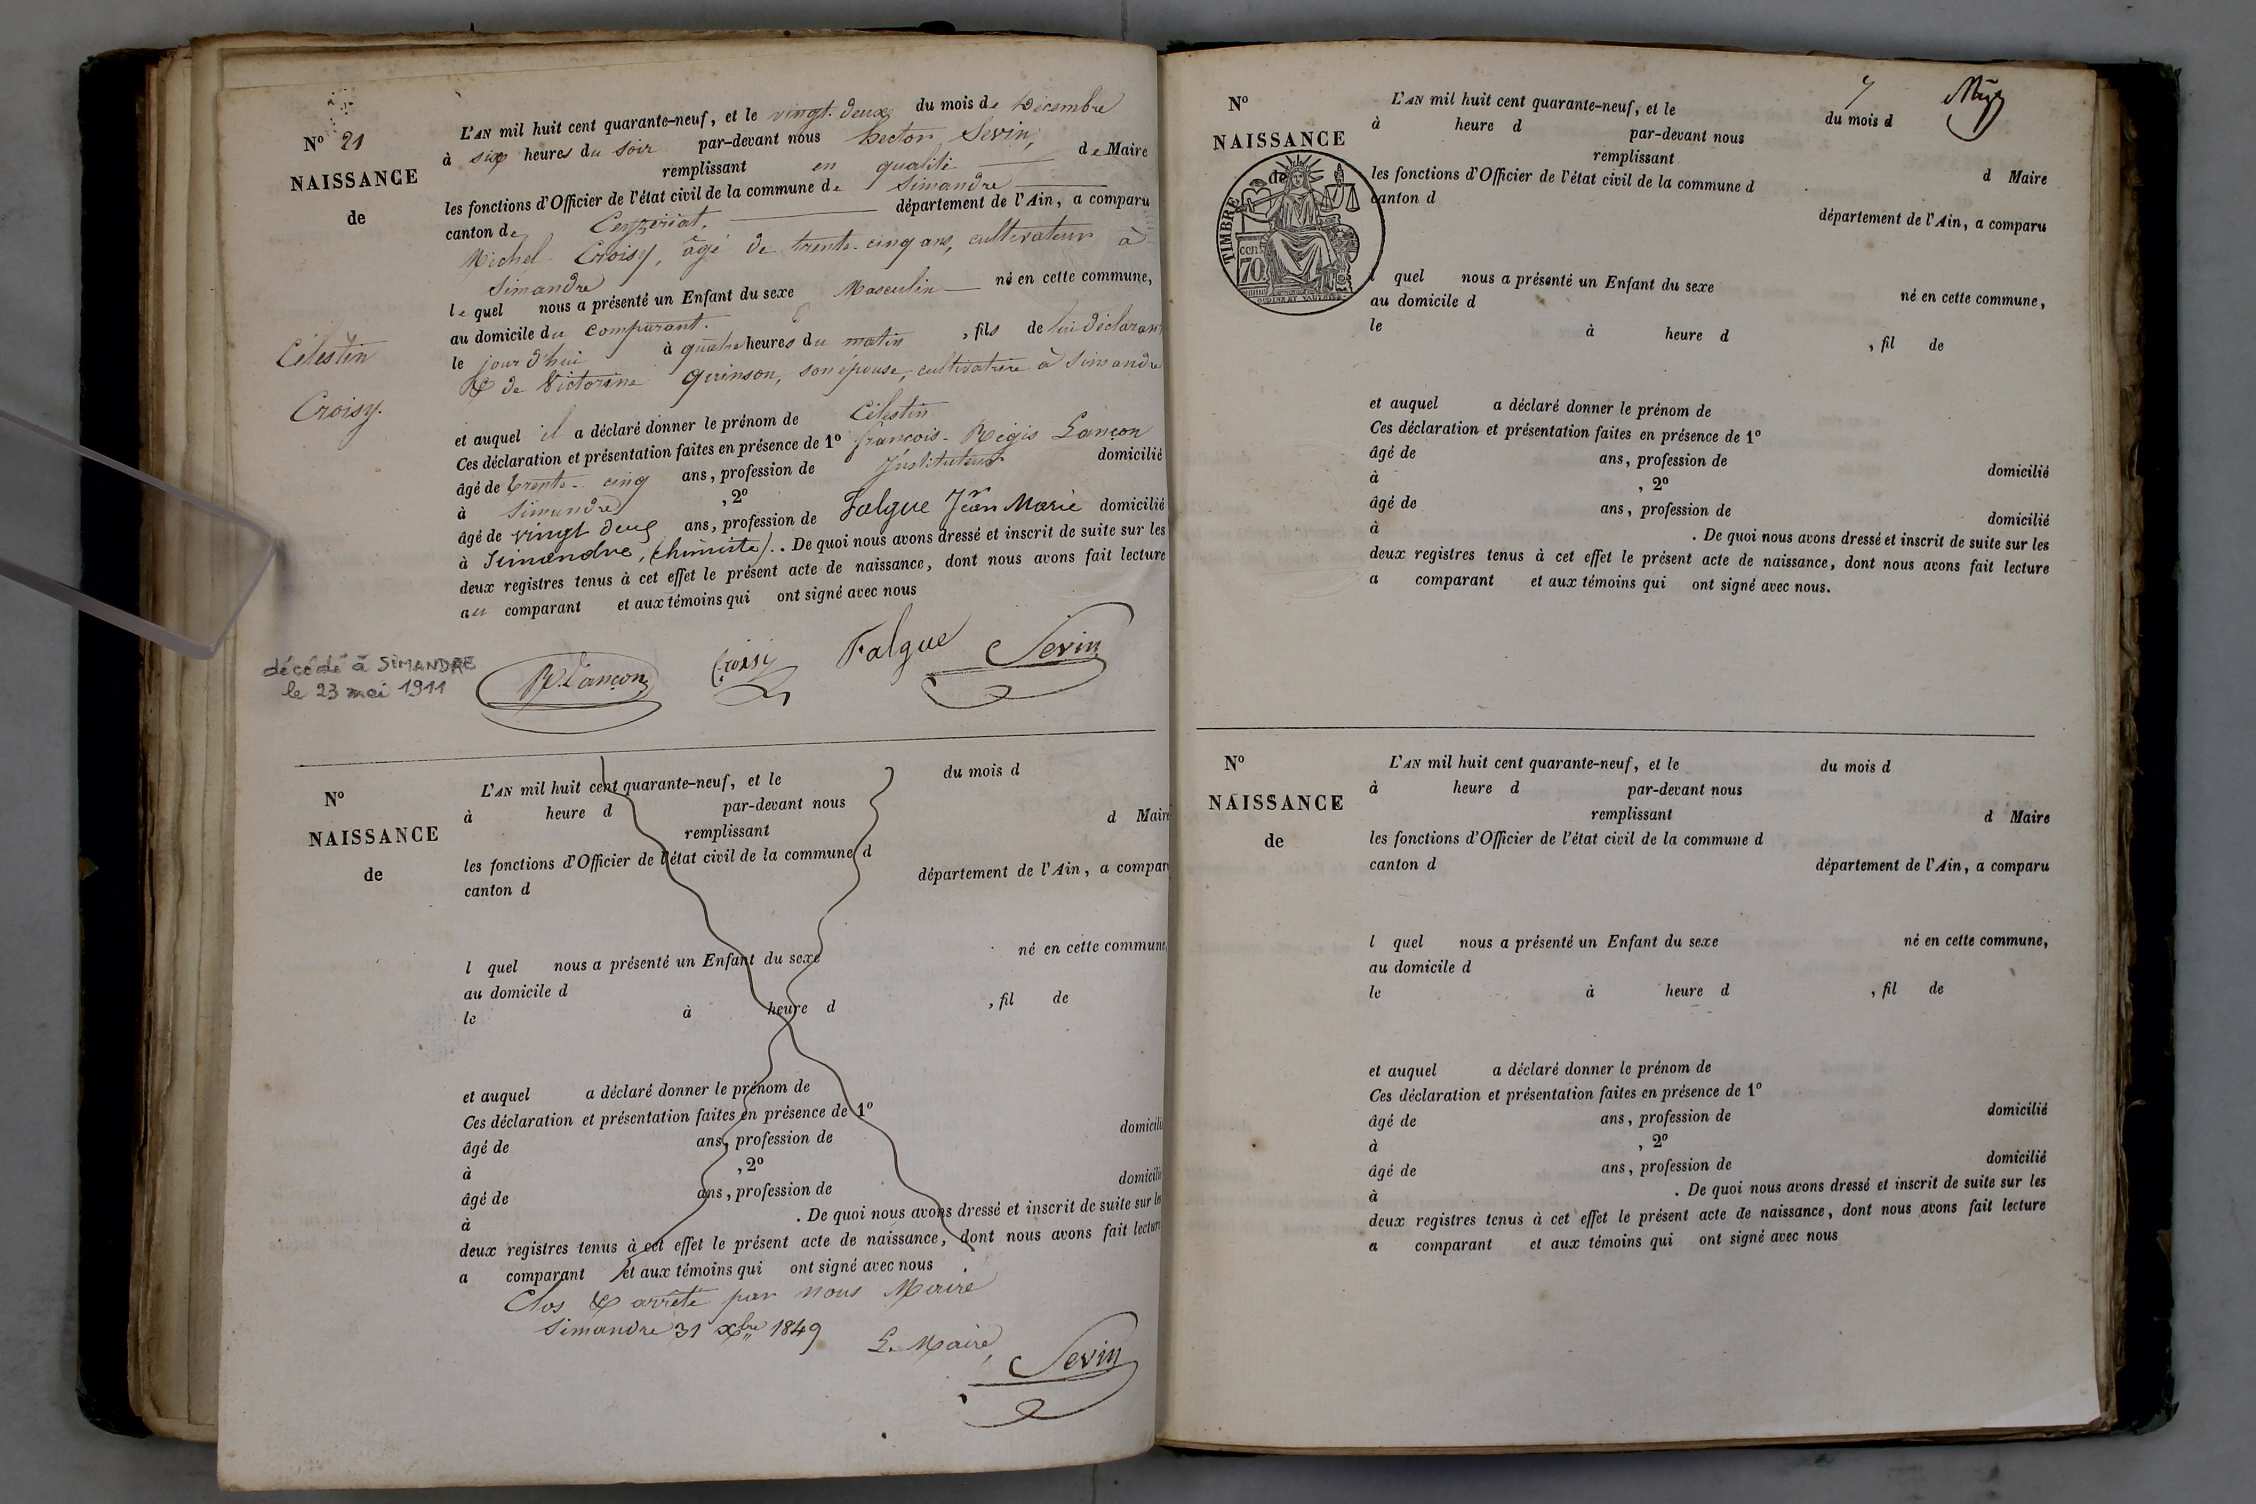 N° 21
NAISSANCE
de
Célestin
Croisy.
L'AN mil huit cent quarante-neuf, et le vingt-deux du mois de Décembre
à six heures du soir par-devant nous hector Sevin,
remplissant en qualité de Maire
les fonctions d'Officier de l'état civil de la commune de Simandre
canton de Ceyzériat, département de l'Ain, a comparu
Michel Croisy, âgé de trente-cinq ans, cultivateur à
Simandre
le quel nous a présenté un Enfant du sexe Masculin né en cette commune,
au domicile du comparant.
le jour d'hui à quatre heures du matin, fils de lui déclarant
& de Victorine Guinson, son épouse, cultivatrice à Simandre
et auquel il a déclaré donner le prénom de Célestin
Ces déclaration et présentation faites en présence de 1° françois-Régis Lançon
âgé de trente-cinq ans, profession de Instituteur domicilié
à Simandre, 2° Falgue Jean Marie
âgé de vingt deux ans, profession de domicilié
à Simandre, (chimiste). . De quoi nous avons dressé et inscrit de suite sur les
deux registres tenus à cet effet le présent acte de naissance, dont nous avons fait lecture
au comparant et aux témoins qui ont signé avec nous
R. Lançon Croisy Falgue Sevin
décédé à SIMANDRE
le 23 mai 1911
N°
NAISSANCE
de
L'AN mil huit cent quarante-neuf, et le du mois d
à heure d par-devant nous
remplissant d Maire
les fonctions d'Officier de l'état civil de la commune d
canton d département de l'Ain, a compar
l quel nous a présenté un Enfant du sexe né en cette commune,
au domicile d
le à heure d , fil de
et auquel a déclaré donner le prénom de
Ces déclaration et présentation faites en présence de 1°
âgé de ans, profession de domicili
à , 2°
âgé de ans, profession de domicilié
à . De quoi nous avons dressé et inscrit de suite sur les
deux registres tenus à cet effet le présent acte de naissance, dont nous avons fait lecture
a comparant et aux témoins qui ont signé avec nous
Clos & arrêté par nous Maire
Simandre 31 Xbre 1849
Le Maire,
Sevin
7
N°
NAISSANCE
de
TIMBRE
cen.
70
L'AN mil huit cent quarante-neuf, et le du mois d
à heure d par-devant nous
remplissant d Maire
les fonctions d'Officier de l'état civil de la commune d
canton d département de l'Ain, a comparu
l quel nous a présenté un Enfant du sexe né en cette commune,
au domicile d
le à heure d , fil de
et auquel a déclaré donner le prénom de
Ces déclaration et présentation faites en présence de 1°
âgé de ans, profession de domicilié
à , 2°
âgé de ans, profession de domicilié
à . De quoi nous avons dressé et inscrit de suite sur les
deux registres tenus à cet effet le présent acte de naissance, dont nous avons fait lecture
a comparant et aux témoins qui ont signé avec nous.
N°
NAISSANCE
de
L'AN mil huit cent quarante-neuf, et le du mois d
à heure d par-devant nous
remplissant d Maire
les fonctions d'Officier de l'état civil de la commune d
canton d département de l'Ain, a comparu
l quel nous a présenté un Enfant du sexe né en cette commune,
au domicile d
le à heure d , fil de
et auquel a déclaré donner le prénom de
Ces déclaration et présentation faites en présence de 1°
âgé de ans, profession de domicilié
à , 2°
âgé de ans, profession de domicilié
à . De quoi nous avons dressé et inscrit de suite sur les
deux registres tenus à cet effet le présent acte de naissance, dont nous avons fait lecture
a comparant et aux témoins qui ont signé avec nous